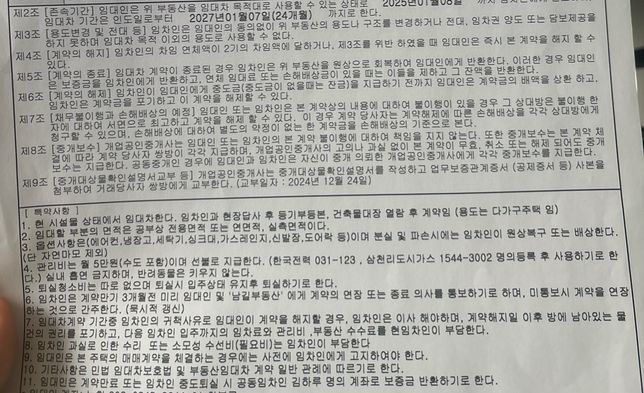 제2조 [존속기간] 임대인은 위 부동산을 임대차 목적대로 사용할 수 있는 상태로 2025년01월08일
임대차 기간은 인도일로부터 2027년01월07일(24개월) 까지로 한다.
제3조 [용도변경 및 전대 등] 임차인은 임대인의 동의없이 위 부동산의 용도나 구조를 변경하거나 전대, 임차권 양도 또는 담보제공을
하지 못하며 임대차 목적 이외의 용도로 사용할 수 없다.
제4조 [계약의 해지] 임차인의 차임 연체액이 2기의 차임액에 달하거나, 제3조를 위반 하였을 때 임대인은 즉시 본 계약을 해지 할 수
있다.
제5조 [계약의 종료] 임대차 계약이 종료된 경우 임차인은 위 부동산을 원상으로 회복하여 임대인에게 반환한다. 이러한 경우 임대인
은 보증금을 임차인에게 반환하고, 연체 임대료 또는 손해배상금이 있을 때는 이들을 제하고 그 잔액을 반환한다.
제6조 [계약의 해제] 임차인이 임대인에게 중도금(중도금이 없을때는 잔금)을 지급하기 전까지 임대인은 계약금의 배액을 상환 하고,
임차인은 계약금을 포기하고 이 계약을 해제할 수 있다.
제7조 [채무불이행과 손해배상의 예정] 임대인 또는 임차인은 본 계약상의 내용에 대하여 불이행이 있을 경우 그 상대방은 불이행 한
자에 대하여 서면으로 최고하고 계약을 해제 할 수 있다. 이 경우 계약 당사자는 계약해제에 따른 손해배상을 각각 상대방에게
청구할 수 있으며, 손해배상에 대하여 별도의 약정이 없는 한 계약금을 손해배상의 기준으로 본다.
제8조 [중개보수] 개업공인중개사는 임대인 또는 임차인의 본 계약 불이행에 대하여 책임을 지지 않는다. 또한 중개보수는 본 계약 체
결에 따라 계약 당사자 쌍방이 각각 지급하며, 개업공인중개사의 고의나 과실 없이 본 계약이 무효, 취소 또는 해제 되어도 중개
보수는 지급한다. 공동중개인 경우에 임대인과 임차인은 자신이 중개 의뢰한 개업공인중개사에게 각각 중개보수를 지급한다.
제9조 [중개대상물확인설명서교부 등] 개업공인중개사는 중개대상물확인설명서를 작성하고 업무보증관계증서 (공제증서 등) 사본을
첨부하여 거래당사자 쌍방에게 교부한다. (교부일자 : 2024년 12월 24일)
[ 특약사항 ]
1. 현 시설물 상태에서 임대차한다. 임차인과 현장답사 후 등기부등본, 건축물대장 열람 후 계약임 (용도는 다가구주택 임)
2. 임대할 부분의 면적은 공부상 전용면적 또는 연면적, 실측면적이다.
3. 옵션사항은(에어컨,냉장고,세탁기,싱크대,가스레인지,신발장,도어락 등)이며 분실 및 파손시에는 임차인이 원상복구 또는 배상한다.
(단 자연마모 제외)
4. 관리비는 월 5만원(수도 포함)이며 선불로 지급한다. (한국전력 031-123 , 삼천리도시가스 1544-3002 명의등록 후 사용하기로 한
다.) 실내 흡연 금지하며, 반려동물은 키우지 않는다.
5. 퇴실청소비는 따로 없으며 퇴실시 입주상태 유지후 퇴실하기로 한다.
6. 임차인은 계약만기 3개월전 미리 임대인 및 '남길부동산' 에게 계약의 연장 또는 종료 의사를 통보하기로 하며, 미통보시 계약을 연장
하는 것으로 간주한다. (묵시적 갱신)
7. 임대차계약 기간중 임차인의 귀책사유로 임대인이 계약을 해지할 경우, 임차인은 이사 해야하며, 계약해지일 이후 방에 남아있는 물
건의 권리를 포기하고, 다음 임차인 입주까지의 임차료와 관리비 ,부동산 수수료를 현임차인이 부담한다.
8. 임차인 과실로 인한 수리 또는 소모성 수선비(필요비)는 임차인이 부담한다
9. 임대인은 본 주택의 매매계약을 체결하는 경우에는 사전에 임차인에게 고지하여야 한다.
10. 기타사항은 민법 임대차보호법 및 부동산임대차 계약 일반 관례에 따르기로 한다.
11. 임대인은 계약만료 또는 임차인 중도퇴실 시 공동임차인 김하루 명의 계좌로 보증금 반환하기로 한다.